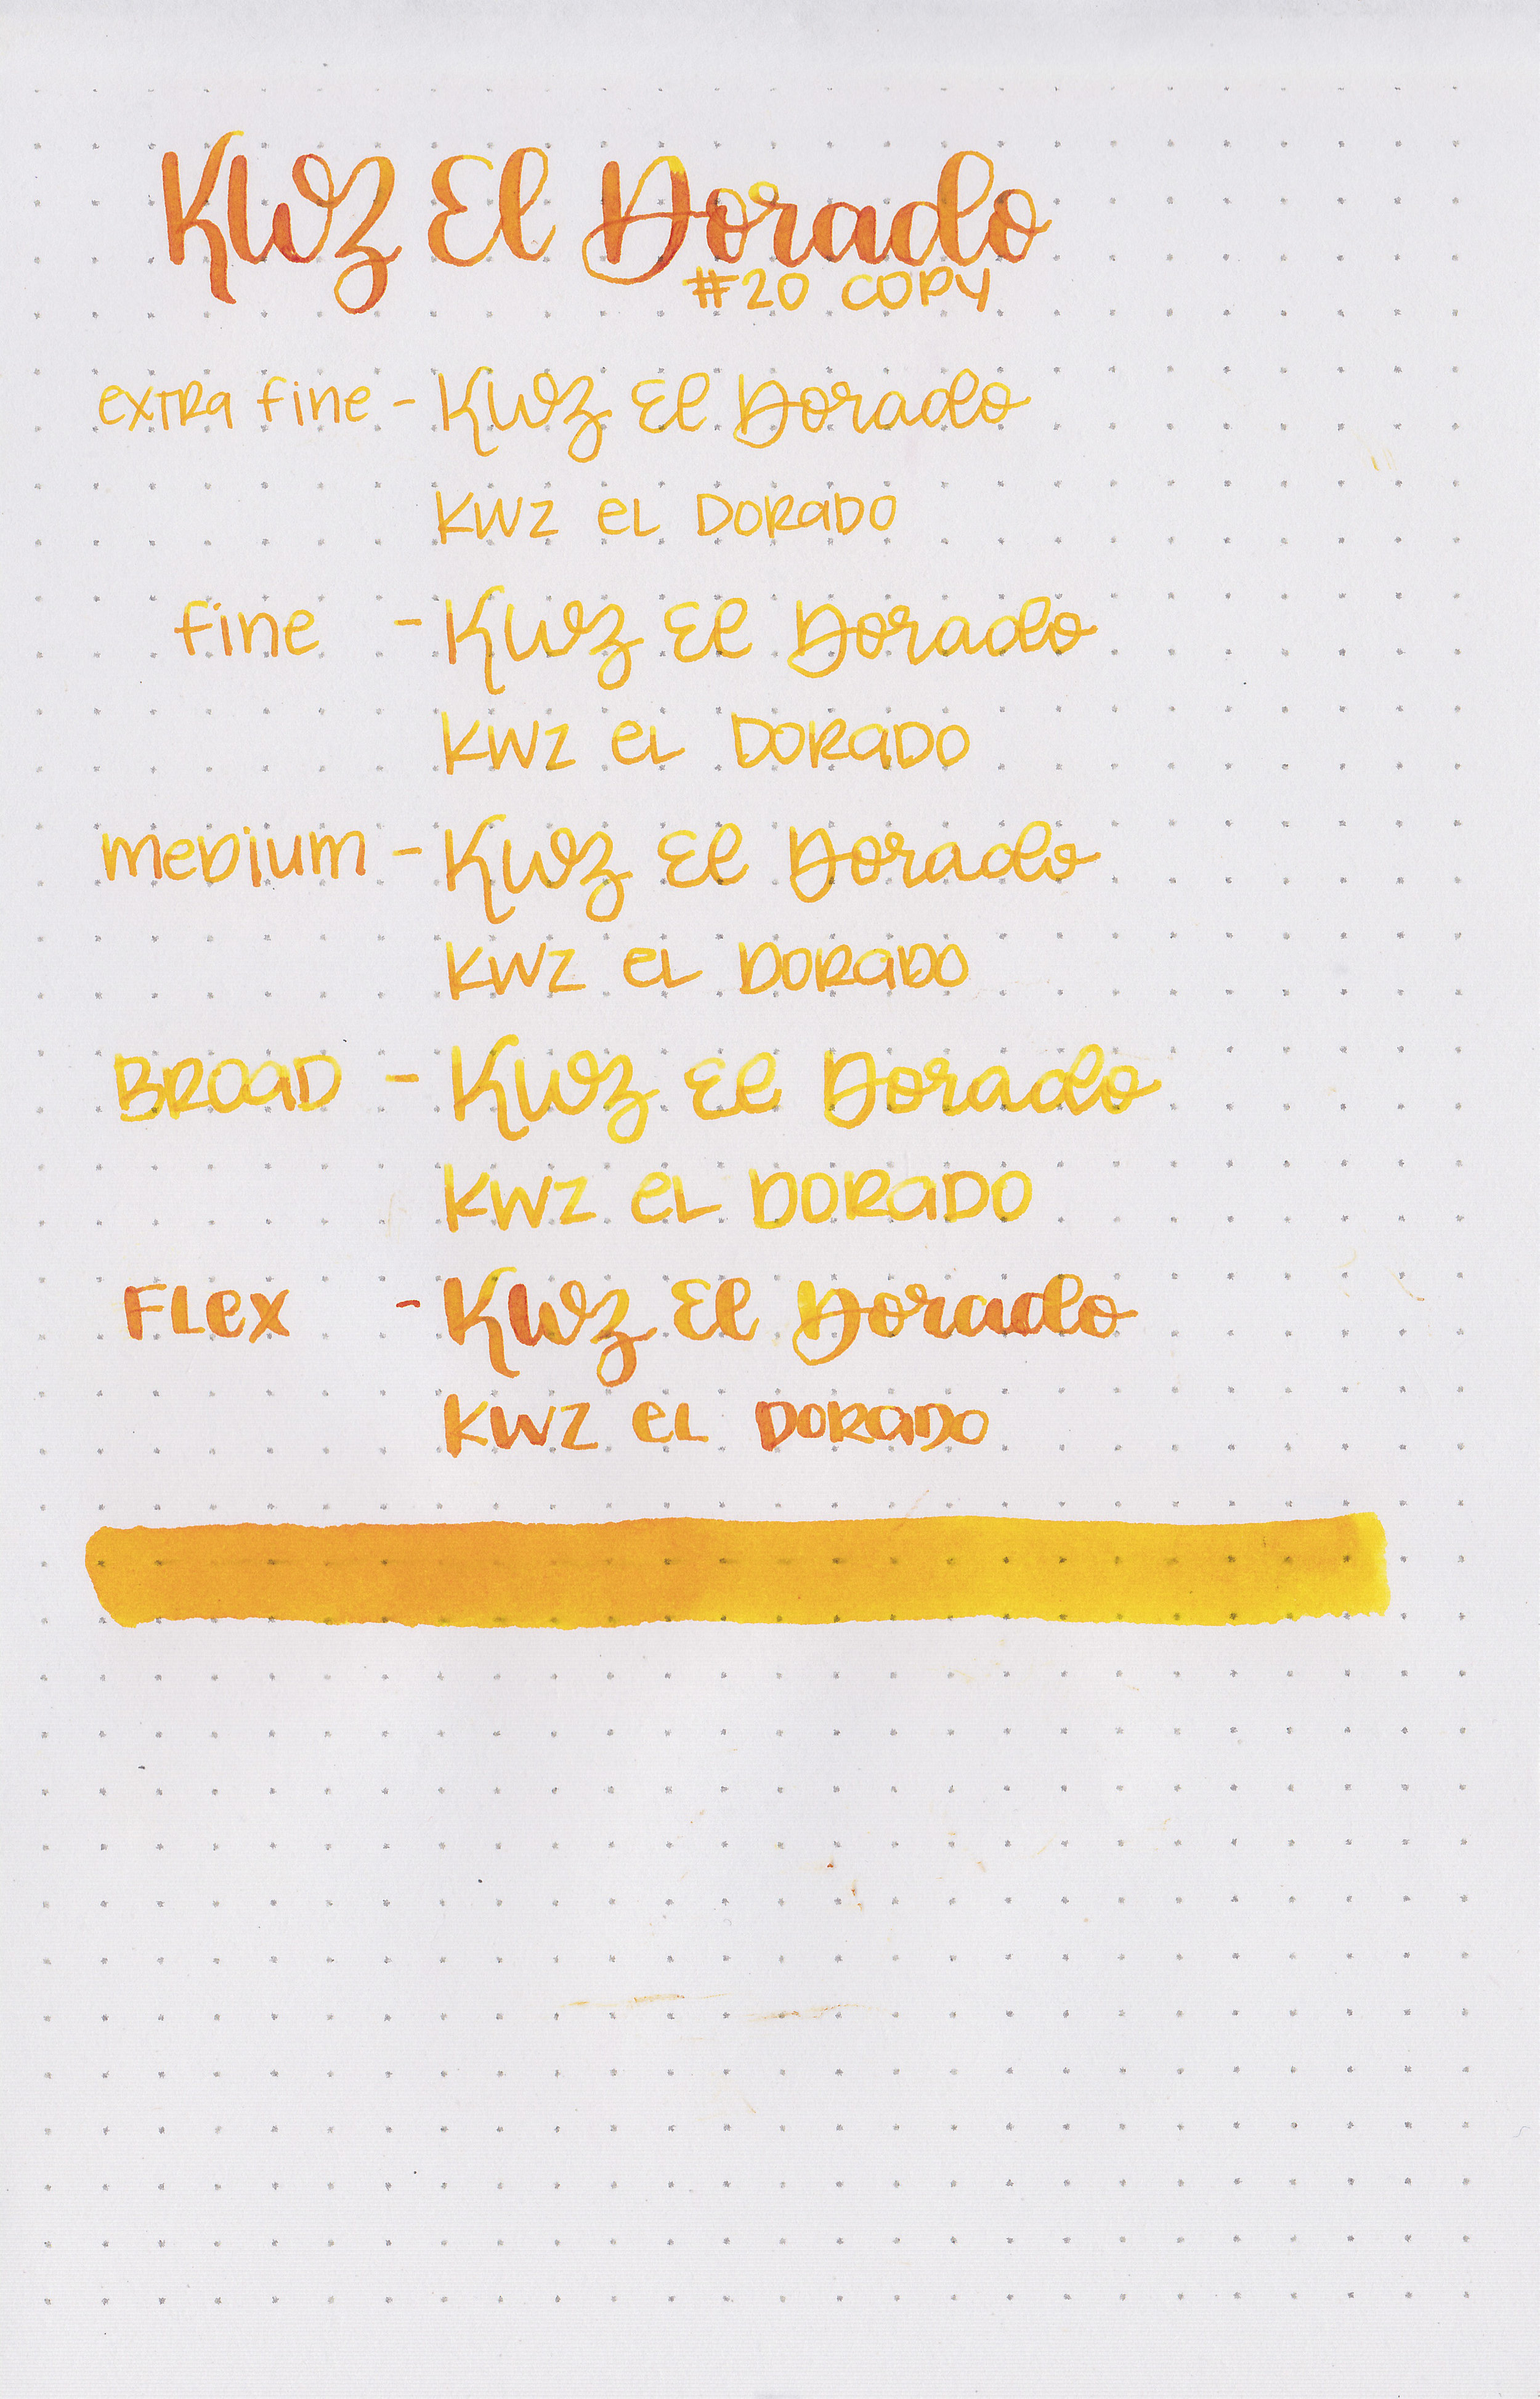 KWZ El Dorado
#20 COPY
extra fine - KWZ El Dorado
KWZ eL DORaDO
fine - KWZ El Dorado
KWZ eL DORaDO
meDium - KWZ El Dorado
KWZ eL DORaDO
BROaD - KWZ El Dorado
KWZ eL DORaDO
FLex - KWZ El Dorado
KWZ eL DORaDO